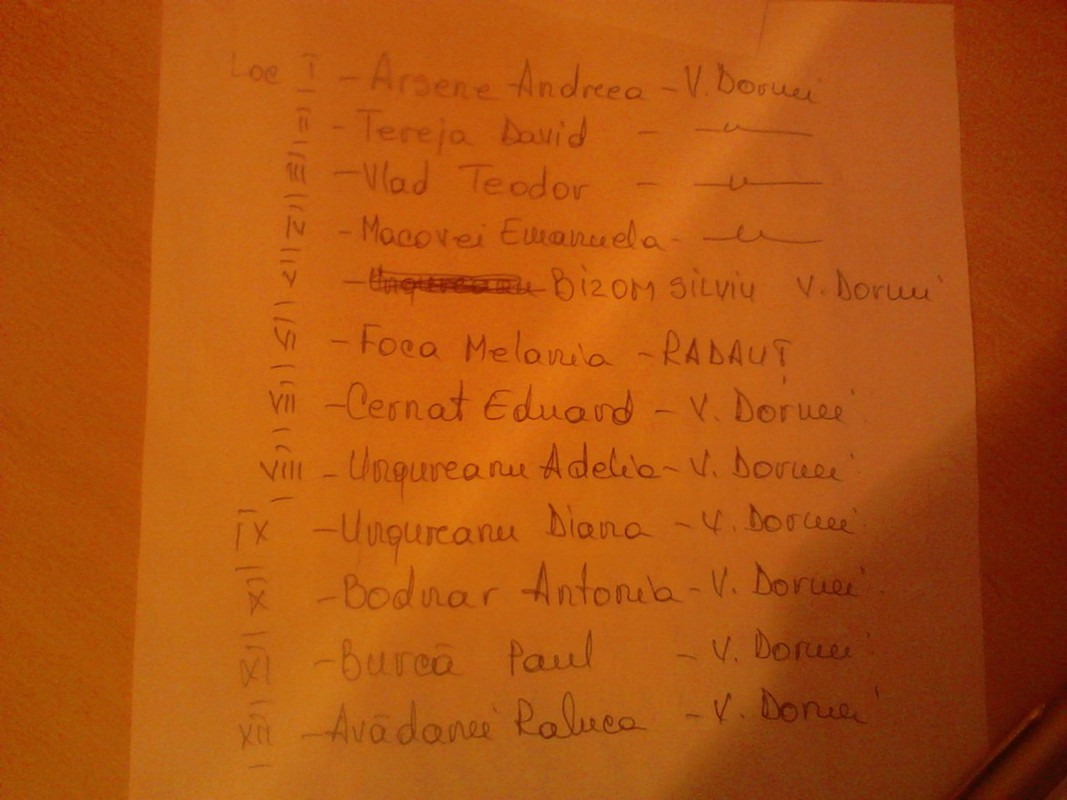 Loc I - Arsene Andreea - V. Dornei
II - Tereja David - —〃—
III - Vlad Teodor - —〃—
IV - Macovei Emanuela - —〃—
V - Bizom Silviu V. Dornei
VI - Foca Melania - RADAUȚ
VII - Cernat Eduard - V. Dornei
VIII - Ungureanu Adelia - V. Dornei
IX - Ungureanu Diana - V. Dornei
X - Bodnar Antonia - V. Dornei
XI - Burcă Paul - V. Dornei
XII - Avădanei Raluca - V. Dornei